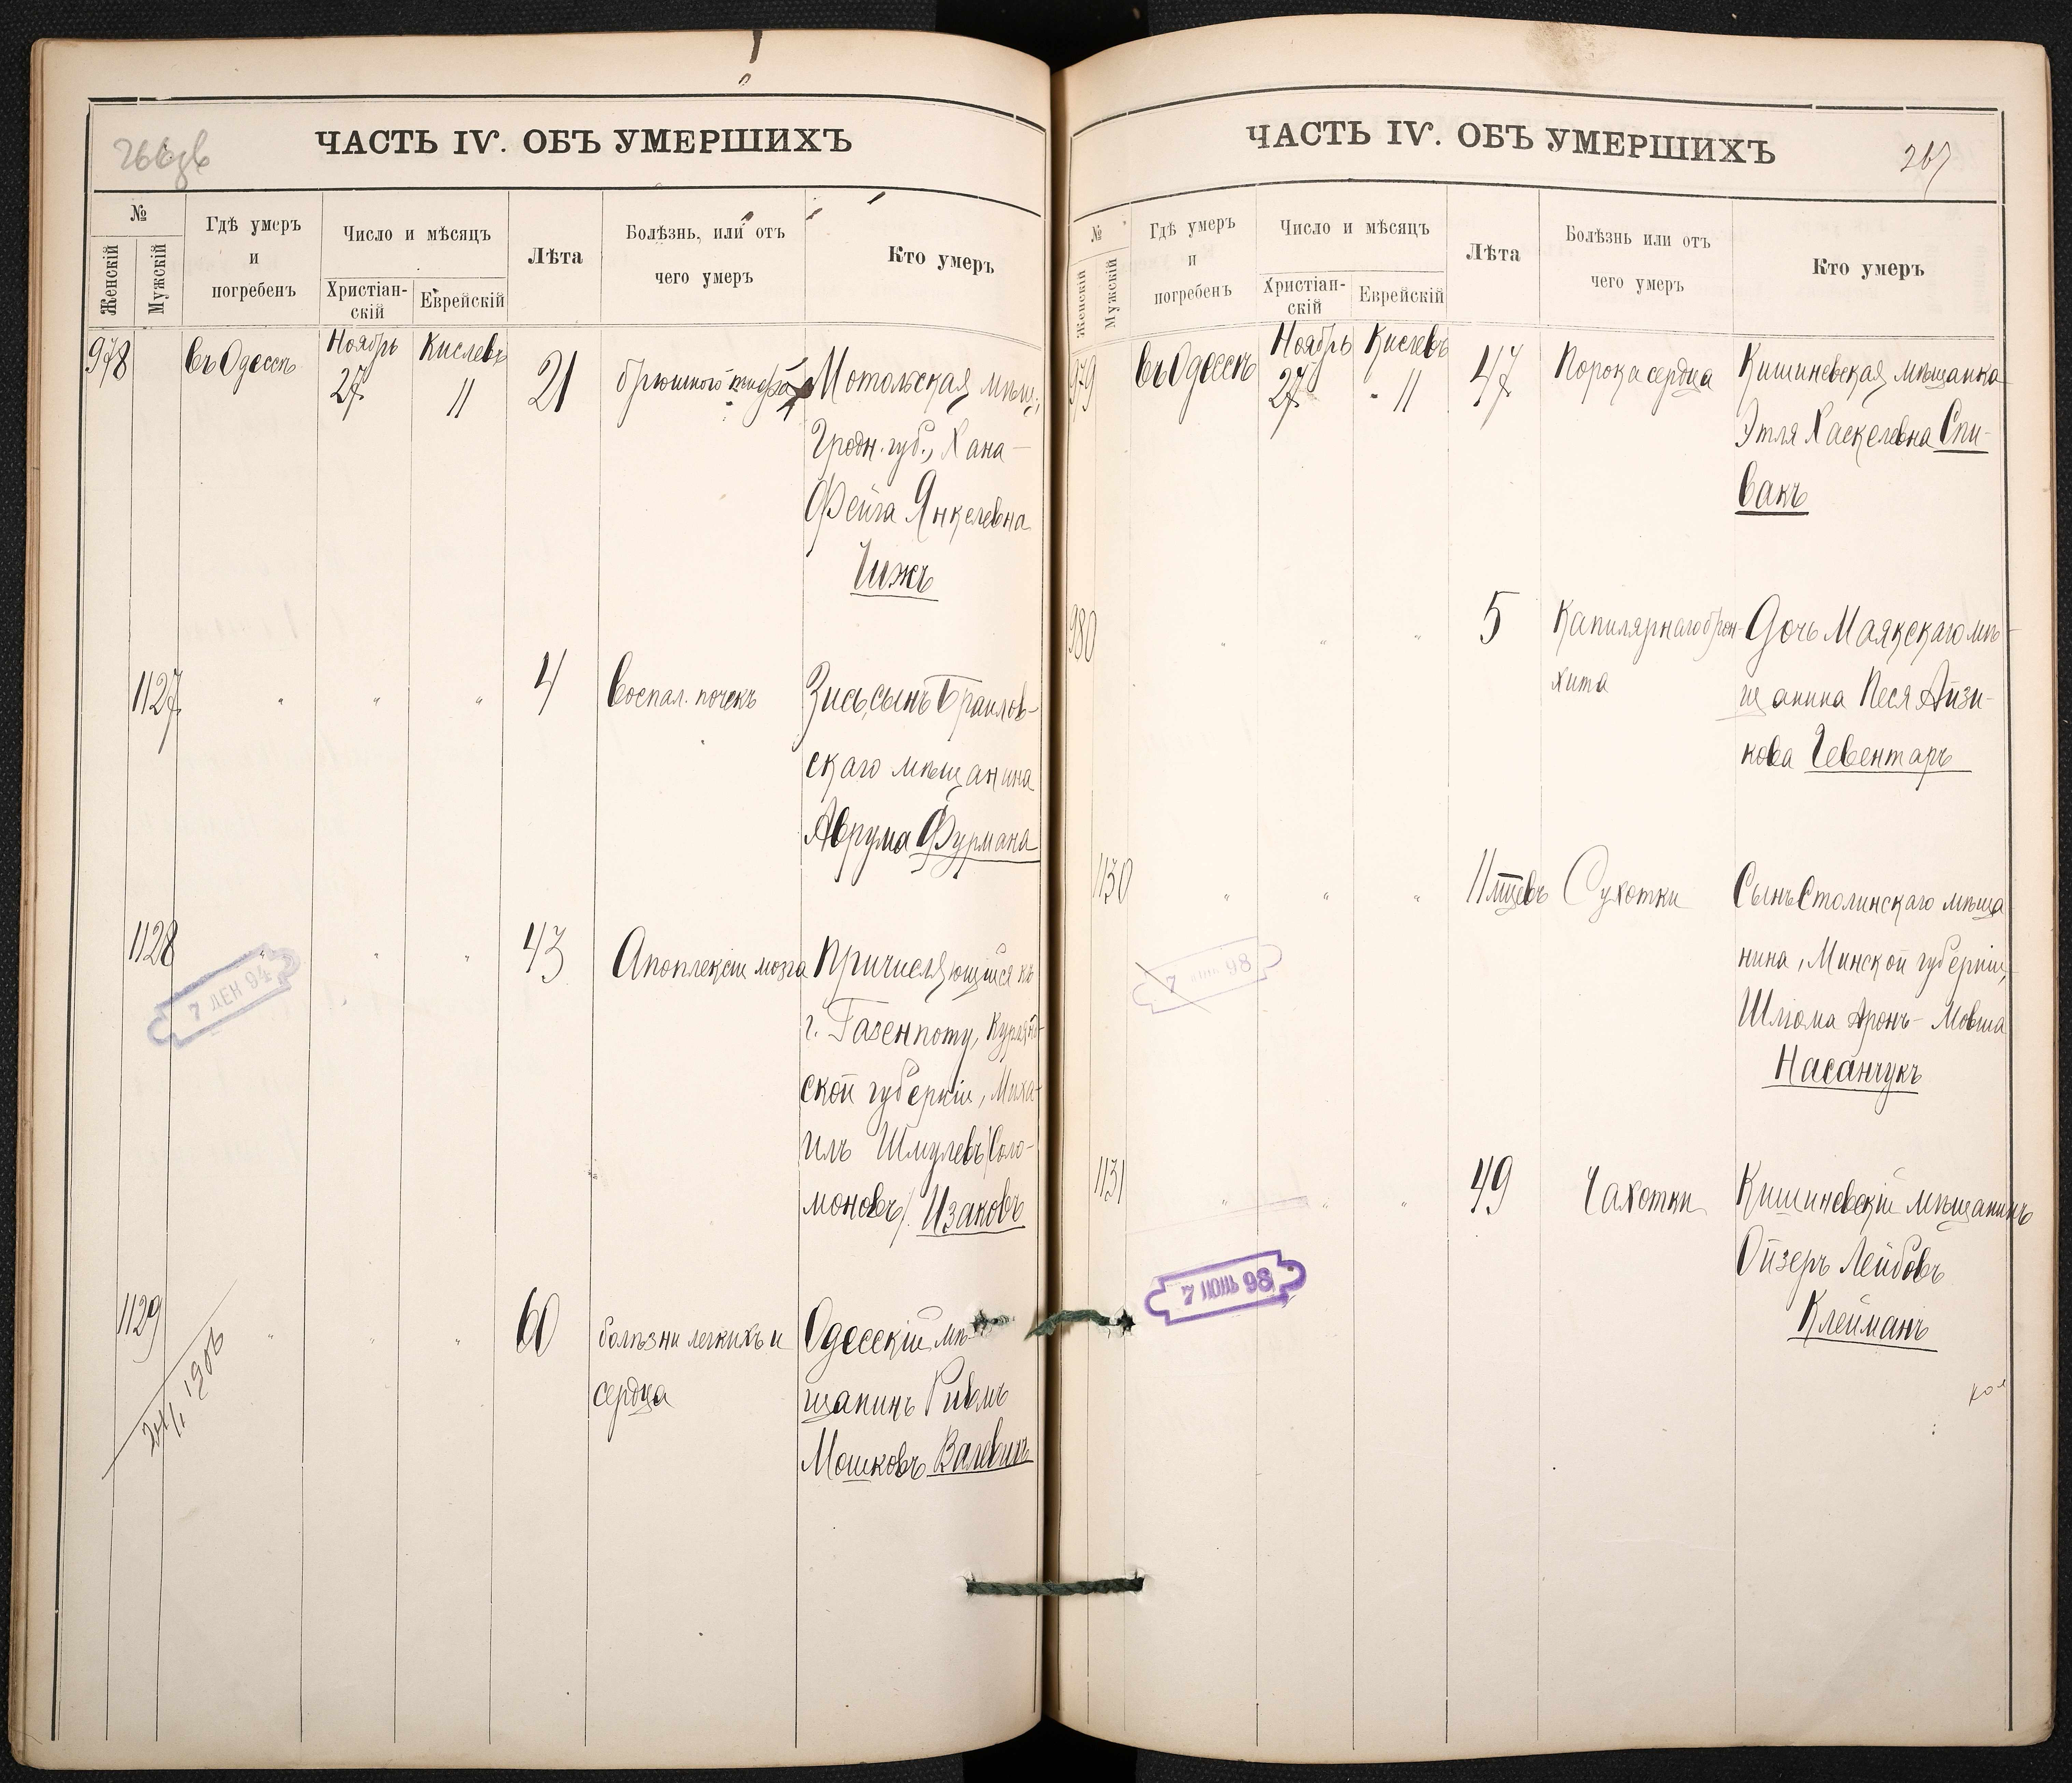 266
ЧАСТЬ IV. ОБЪ УМЕРШИХЪ
№
Женскій
Мужскій
Гдѣ умеръ
и
погребенъ
Число и мѣсяцъ
Христіан-
скій
Еврейскій
Лѣта
Болѣзнь, или отъ
чего умеръ
Кто умеръ
978
въ Одессѣ
Ноябрь
27
Кислевъ
11
21
брюшного тифа
Мотольская мѣщ.,
Гродн. губ., Хана-
Фейга Янкелевна
Чижъ
1127
" " "
4
Воспал. почекъ
Зись, сынъ Браилов-
скаго мѣщанина
Аврума Фурмана
1128
" " "
43
Апоплексіи мозга
Причисляющійся къ
г. Газенпоту, Курлянд-
ской губерніи, Миха-
илъ Шмулевъ (Соло-
моновъ). Изаковъ
7 ДЕК 94
1129
" " "
60
болѣзни легкихъ и
сердца
Одесскій мѣ-
щанинъ
Мошковъ Валевикъ
1906
ЧАСТЬ IV. ОБЪ УМЕРШИХЪ
267
№
Женскій
Мужскій
Гдѣ умеръ
и
погребенъ
Число и мѣсяцъ
Христіан-
скій
Еврейскій
Лѣта
Болѣзнь или отъ
чего умеръ
Кто умеръ
979
въ Одессѣ
Ноябрь
27
Кислевъ
11
47
Порока сердца
Кишиневская мѣщанка
Этля Хаскелевна Спи-
вакъ
980
" " "
5
Капилярнаго брон-
хита
Дочь Маякскаго мѣ-
щанина Песя Айзи-
кова Гевентаръ
1130
" " "
11 мцевъ
Сухотки
Сынъ Столинскаго мѣща
нина, Минской губерніи,
Шлома Аронъ-Мовша
Насанчукъ
7 ІЮНЬ 98
1131
" " "
49
Чахотки
Кишиневскій мѣщанинъ
Ойзеръ Лейбовъ
Клейманъ
7 ІЮНЬ 98